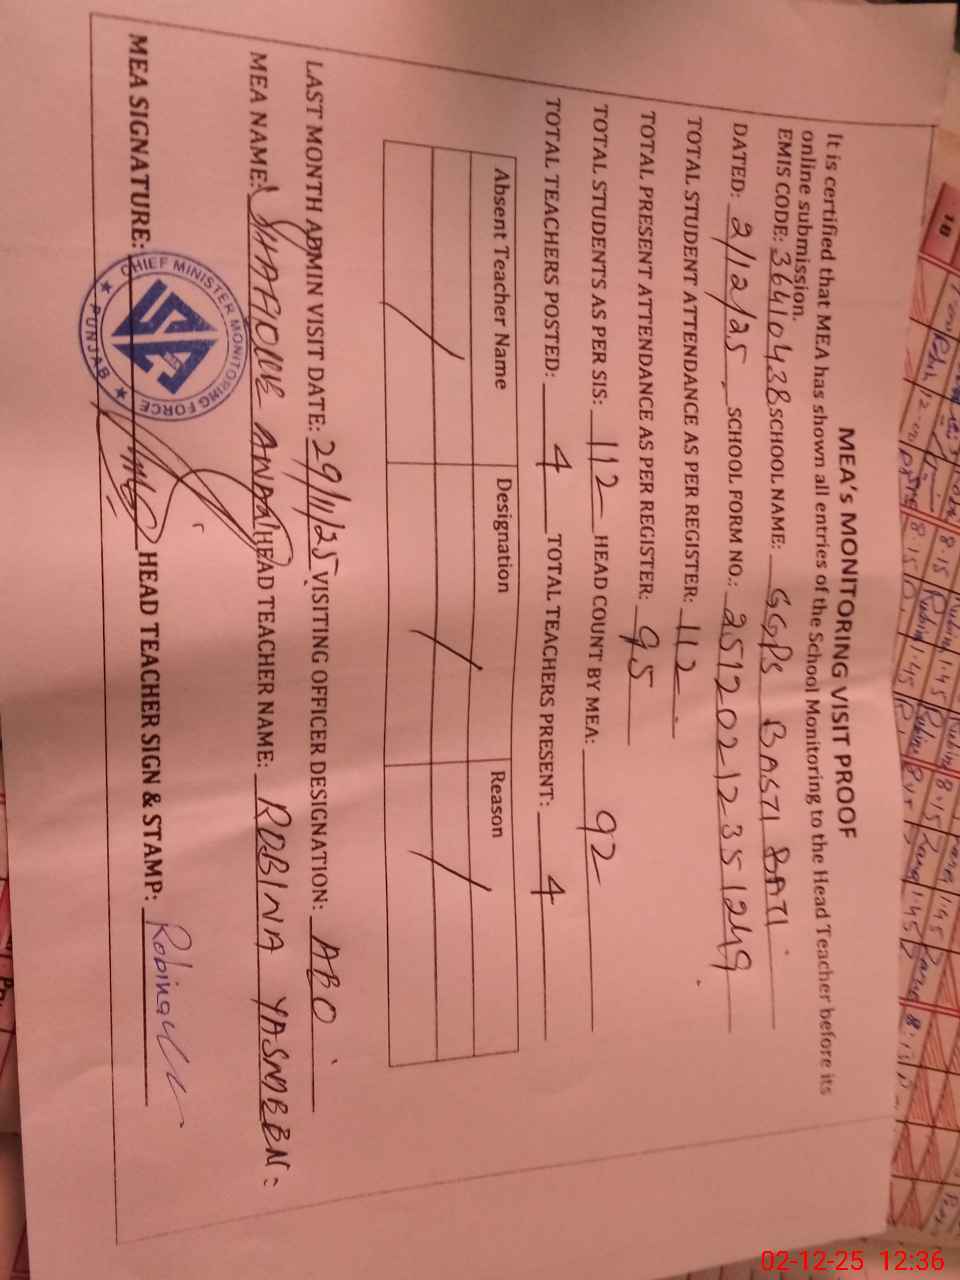 MEA's MONITORING VISIT PROOF
It is certified that MEA has shown all entries of the School Monitoring to the Head Teacher before its
online submission.
EMIS CODE: 36410438 SCHOOL NAME: GGPS BASTI BATI
DATED: 2/12/25 SCHOOL FORM NO.: 25120212351249
TOTAL STUDENT ATTENDANCE AS PER REGISTER: 112
TOTAL PRESENT ATTENDANCE AS PER REGISTER: 95
TOTAL STUDENTS AS PER SIS: 112 HEAD COUNT BY MEA: 92
TOTAL TEACHERS POSTED: 4 TOTAL TEACHERS PRESENT: 4
Absent Teacher Name Designation Reason
/ / /
LAST MONTH ADMIN VISIT DATE: 29/11/25 VISITING OFFICER DESIGNATION: ABO
MEA NAME: HEAD TEACHER NAME: ROBINA YASMEEN
MEA SIGNATURE: HEAD TEACHER SIGN & STAMP: Robina
CHIEF MINISTER MONITORING FORCE
PUNJAB
02-12-25 12:36